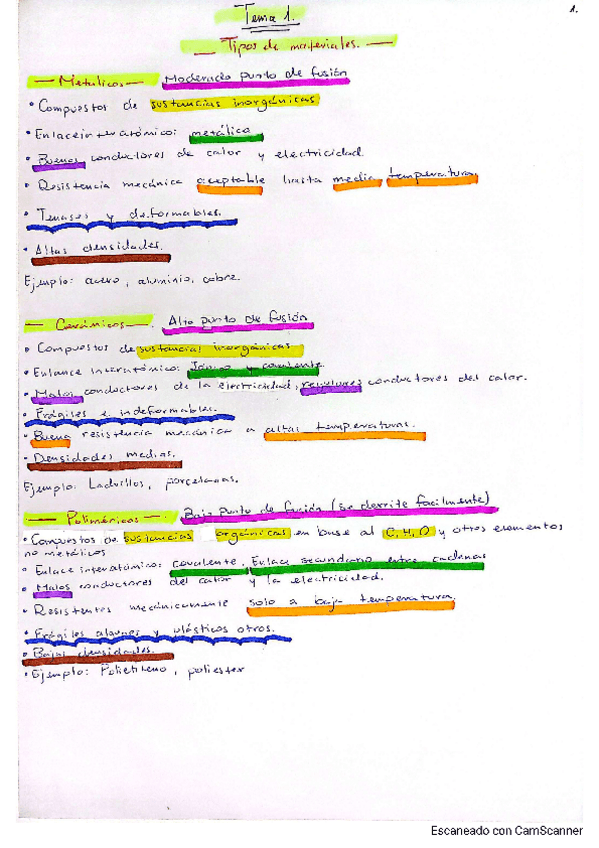 Tema 1.
1.
— Tipos de materiales. —
— Metalicos — Moderado punto de fusión
• Compuestos de sustancias inorgánicas
• Enlace interatómico: metálico
• Buenos conductores de calor y electricidad.
• Resistencia mecánica aceptable hasta media temperatura.
• Tenases y deformables.
• Altas densidades.
Ejemplo: acero, aluminio, cobre.
— Cerámicos —. Alto punto de fusión
• Compuestos de sustancias inorgánicas
• Enlance interatómico: Iónico y covalente.
• Malos conductores de la electricidad, regulares conductores del calor.
• Frágiles e indeformables.
• Buena resistencia mecánica a altas temperaturas.
• Densidades medias.
Ejemplo: Ladrillos, porcelanas.
— Poliméricos — Bajo punto de fusión (se derrite facilmente)
• Compuestos de sustancias orgánicas en base al C, H, O y otros elementos
no metálicos
• Enlace interatómico: covalente, Enlace secundario entre cadenas
• Malos conductores del calor y la electricidad.
• Resistentes mecánicamente solo a baja temperatura.
• Frágiles algunos y plásticos otros.
• Bajas densidades.
• Ejemplo: Polietileno, poliester
Escaneado con CamScanner